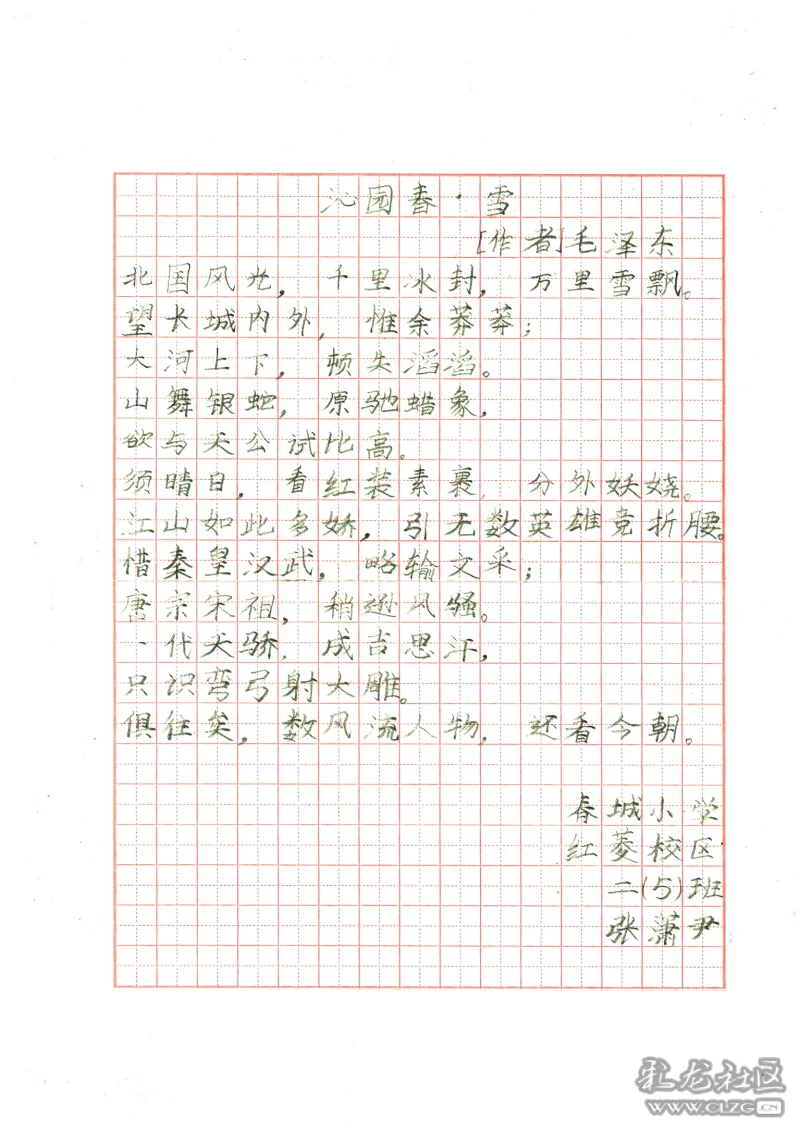 沁园春·雪
[作者]毛泽东
北国风光，千里冰封，万里雪飘。
望长城内外，惟余莽莽；
大河上下，顿失滔滔。
山舞银蛇，原驰蜡象，
欲与天公试比高。
须晴日，看红装素裹，分外妖娆。
江山如此多娇，引无数英雄竞折腰。
惜秦皇汉武，略输文采；
唐宗宋祖，稍逊风骚。
一代天骄，成吉思汗，
只识弯弓射大雕。
俱往矣，数风流人物，还看今朝。
春城小学
红菱校区
二(5)班
张萧尹
化龙社区
WWW.CLZG.CN